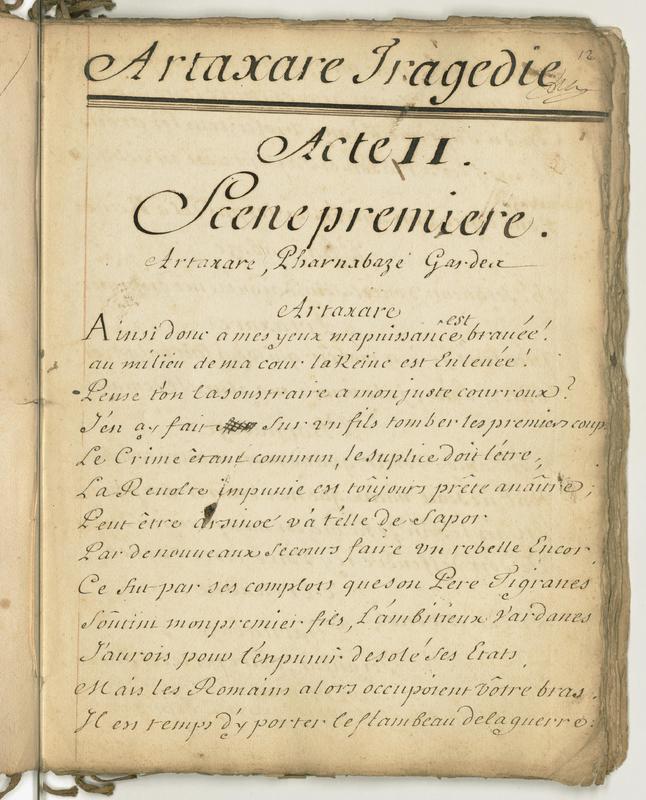 12
Artaxare Tragedie
Acte II.
Scene premiere.
Artaxare, Pharnabaze Gardes
Artaxare
Ainsi donc a mes yeux ma puissance est brauée!
au milieu de ma cour la Reine est Enleuée!
Pense t'on la soustraire a mon juste courroux?
J'en ay fait sur vn fils tomber les premiers coup
Le Crime êtant commun, le suplice doit l'être,
La Reuolte impunie est toûjours prête a naître;
Peut être arsinoé va t'elle de Sapor
Par de nouueaux Secours faire vn rebelle Encor,
Ce fut par ses complots que son Pere Tigranes
soûtint mon premier fils, L'ambitieux Vardanes
J'aurois pour l'en punir desolé ses Etats,
Mais les Romains alors occupoient vôtre bras.
Il est temps d'y porter le flambeau de la guerre: